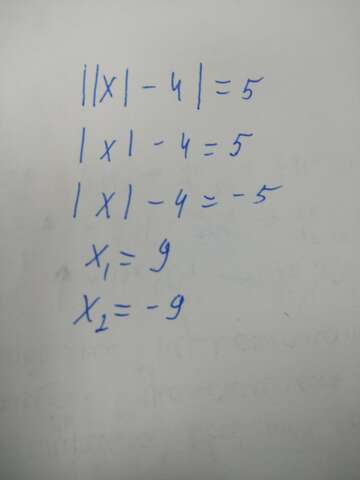 ||x| - 4| = 5
|x| - 4 = 5
|x| - 4 = -5
x₁ = 9
x₂ = -9